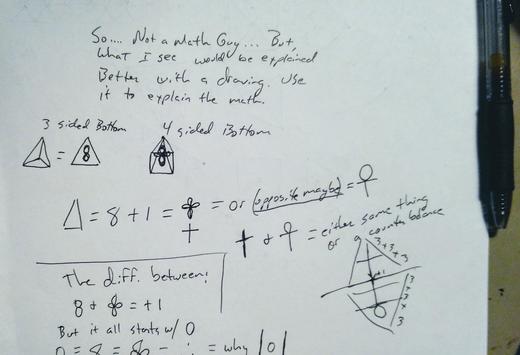 So.... Not a Math Guy... But,
What I see would be explained
Better with a drawing. Use
it to explain the math.
3 sided Bottom
4 sided Bottom
= 8
8
Δ = 8 + 1 = = or (opposite maybe) =
+ = either same thing
or a counter balance
3+3+3
+1
3+3+3
The diff. between:
8 + = +1
But it all starts w/ 0
0 = 8 = = why |0|